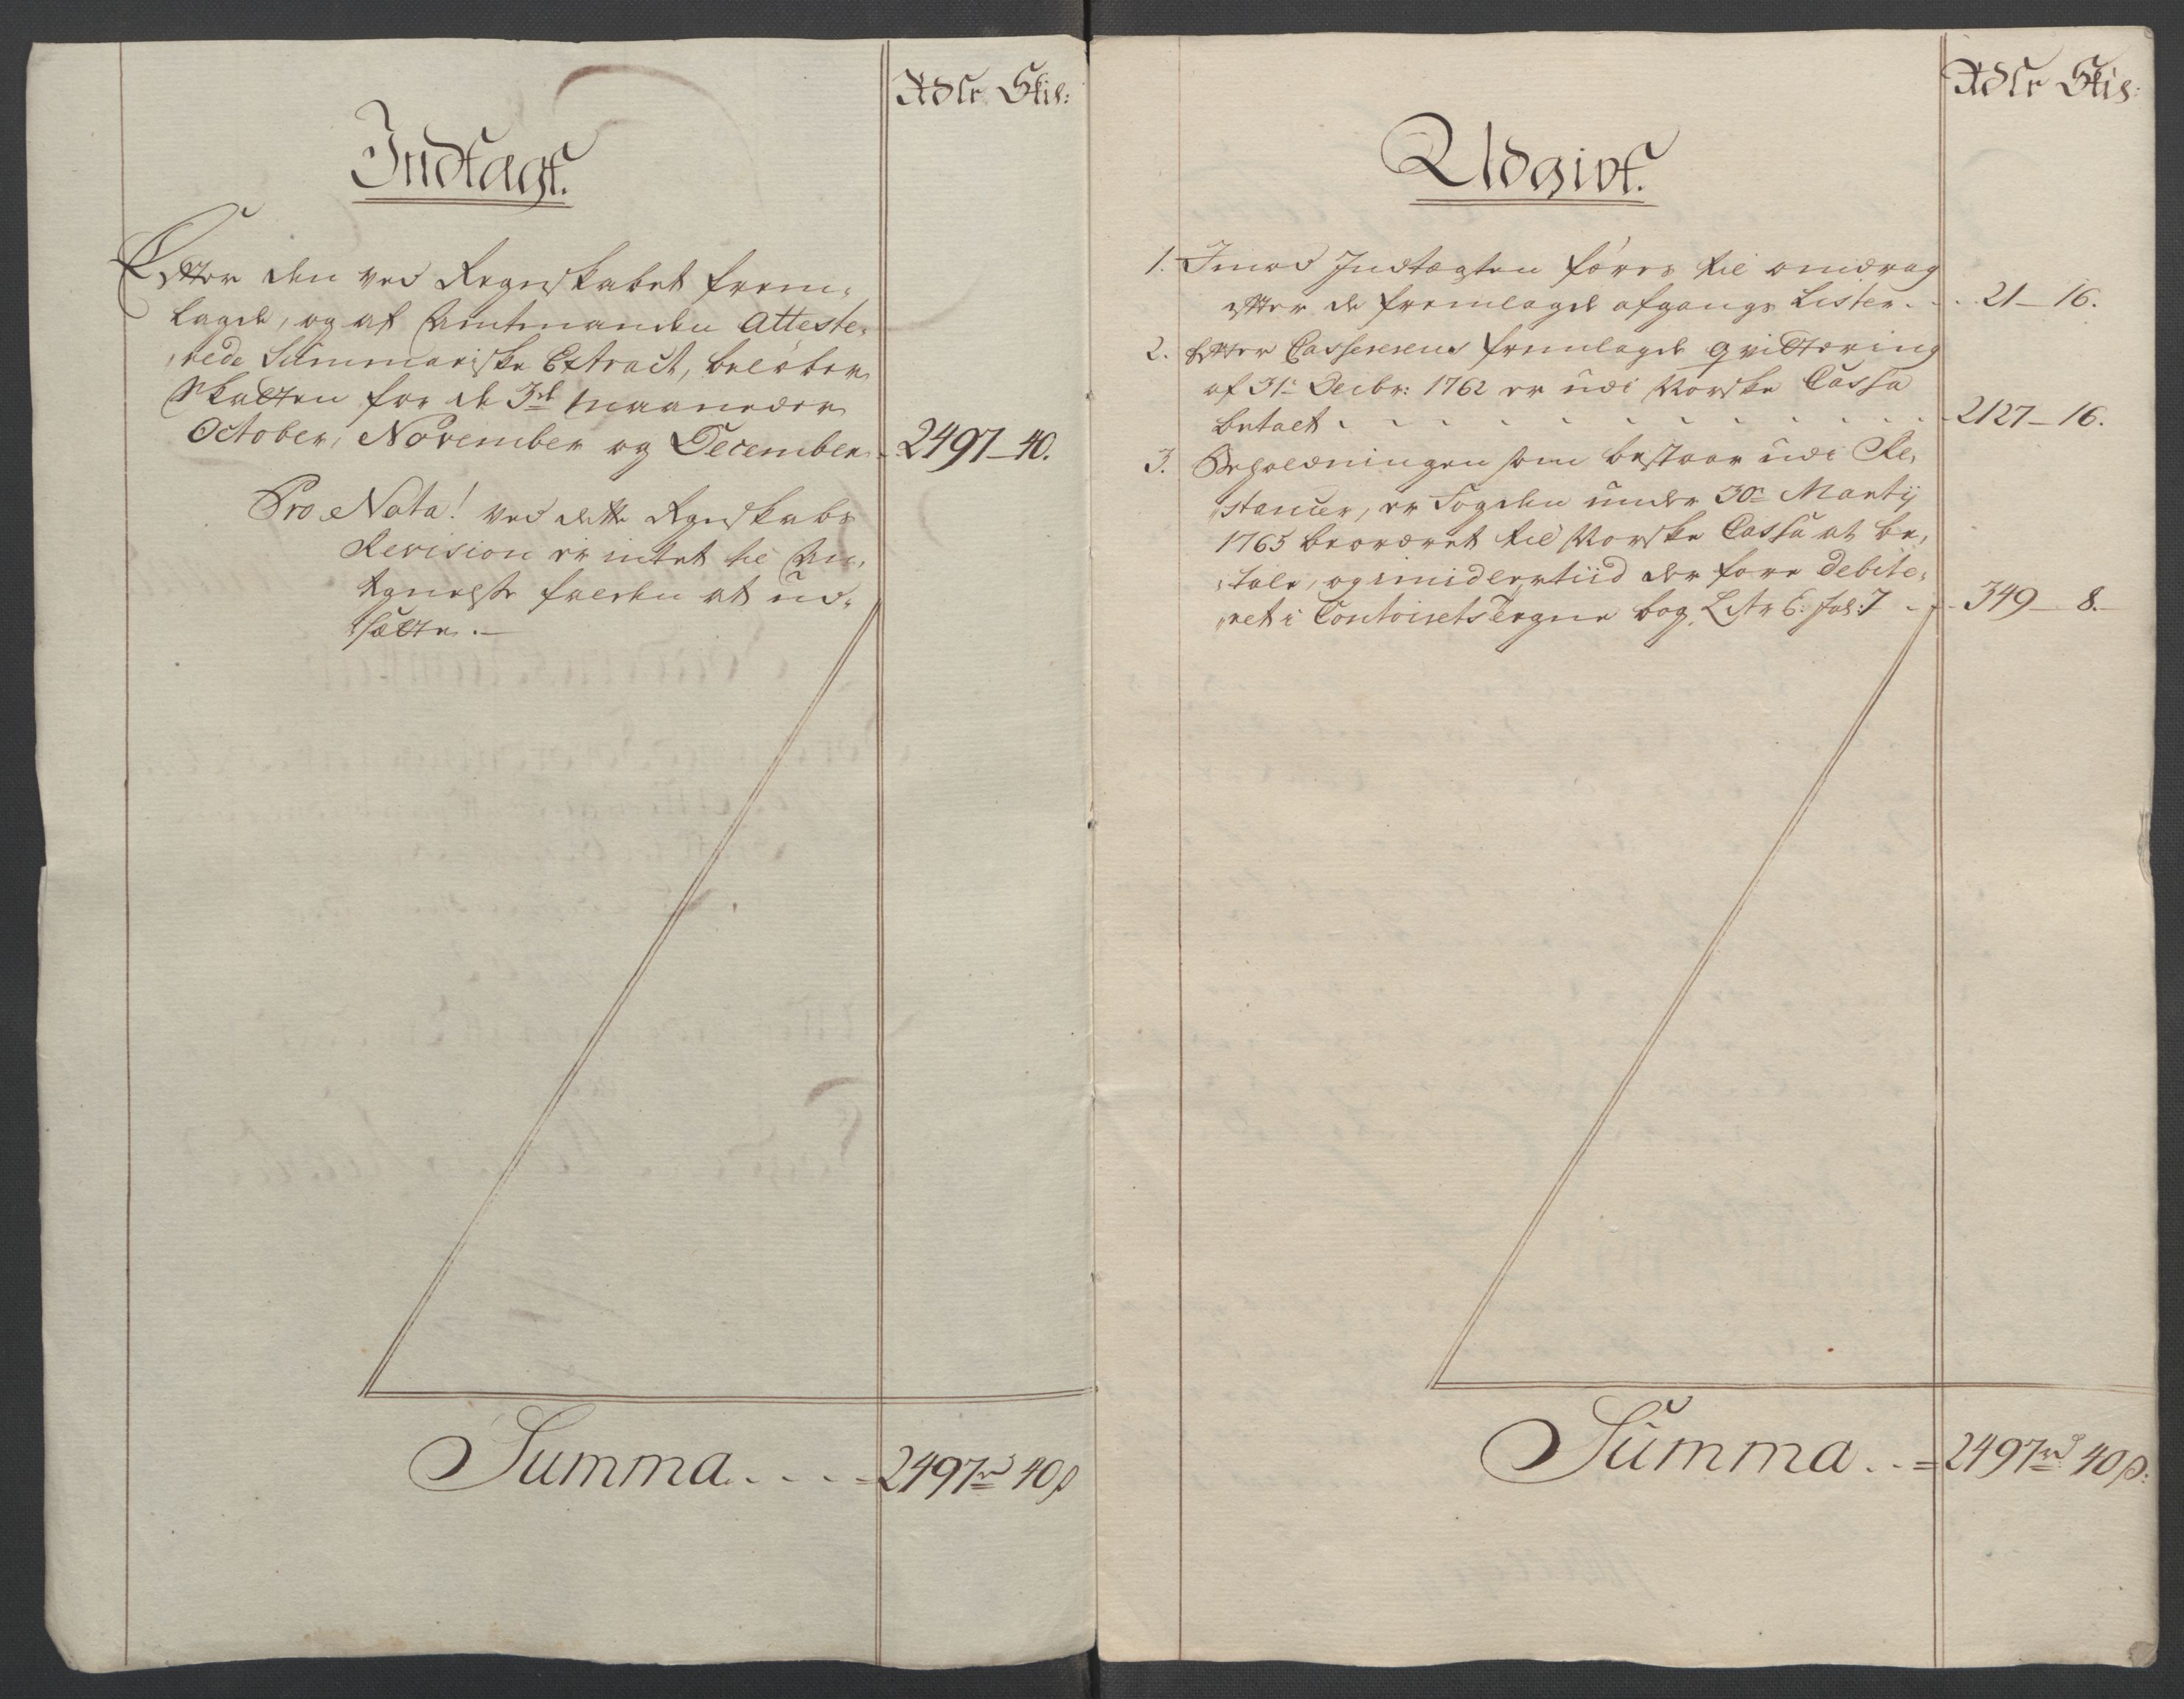 Rdlr Skil:
Indtægt.
Efter den ved Regnskabet frem-
lagde, og af Amtmanden Atteste-
rede Summariske Extract, beløber
Skatten for de 3de Maaneder
October, November og December - 2497 - 40.
Pro Nota! ved dette Regnskabs
Revision er intet til An-
tegnelse falden at ud-
sætte.
Summa - - - - 2497rd 40s
Rdlr Skil:
Udgivt.
1. Imod Indtægten føres til omdrag
efter de fremlagde afgangs Lister - - - 21 - 16.
2. Efter Cassererens fremlagde qvittering
af 31te Decbr: 1762 er udi Norske Cassa
betalt - - - - - - - - 2127 - 16.
3. Beholdningen som bestaar udi Re-
stancer, er Fogden under 30te Martij
1765 beordret til Norske Cassa at be-
tale, og imidlertiid derfore debite-
ret i Contoirets Tegne bog, Litr 6: fol: 7 - - 349 - 8.
Summa - - 2497rd 40s: